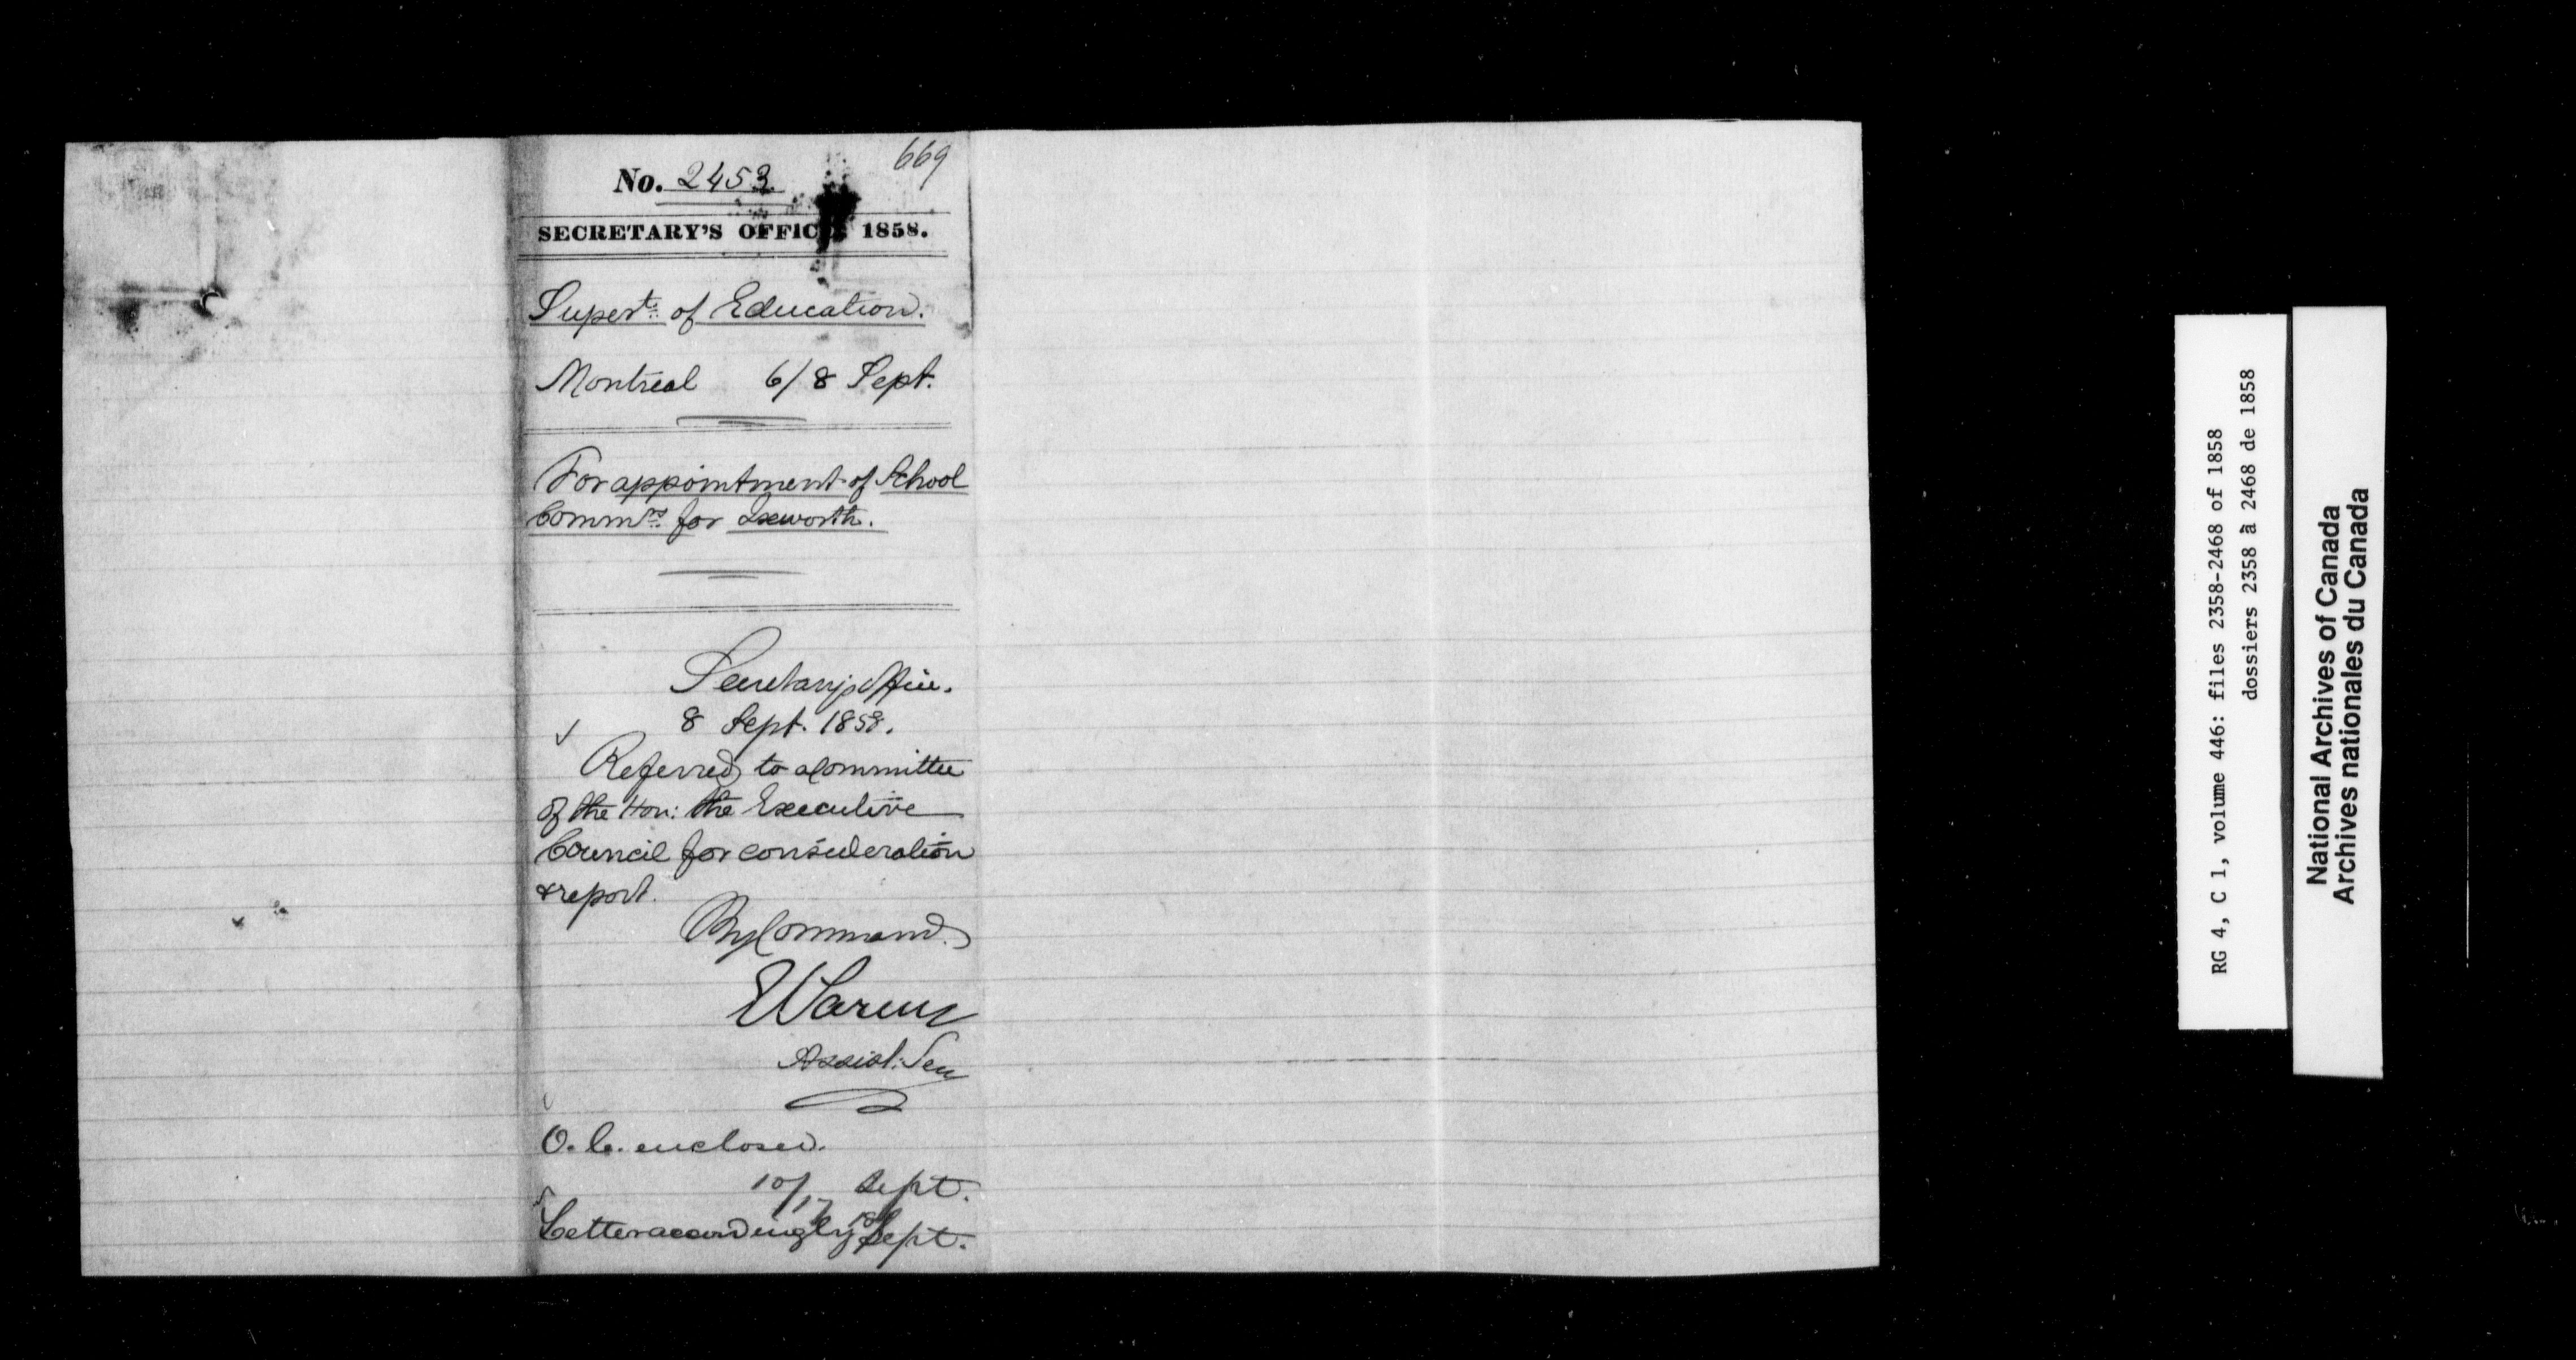 669
No. 2453
SECRETARY'S OFFICE 1858.
Supert. of Education.
Montreal 6/8 Sept.
For appointment of School
Commrs. for Ixworth.
Secretary's Office.
8 Sept. 1858.
Referred to a Committee
of the Hon: the Executive
Council for consideration
& report.
By Command.
Assist: Secy
O. C. enclosed.
10/17 Sept.
Letter accordingly Sept.
RG 4, C 1, volume 446: files 2358-2468 of 1858
dossiers 2358 à 2468 de 1858
National Archives of Canada
Archives nationales du Canada